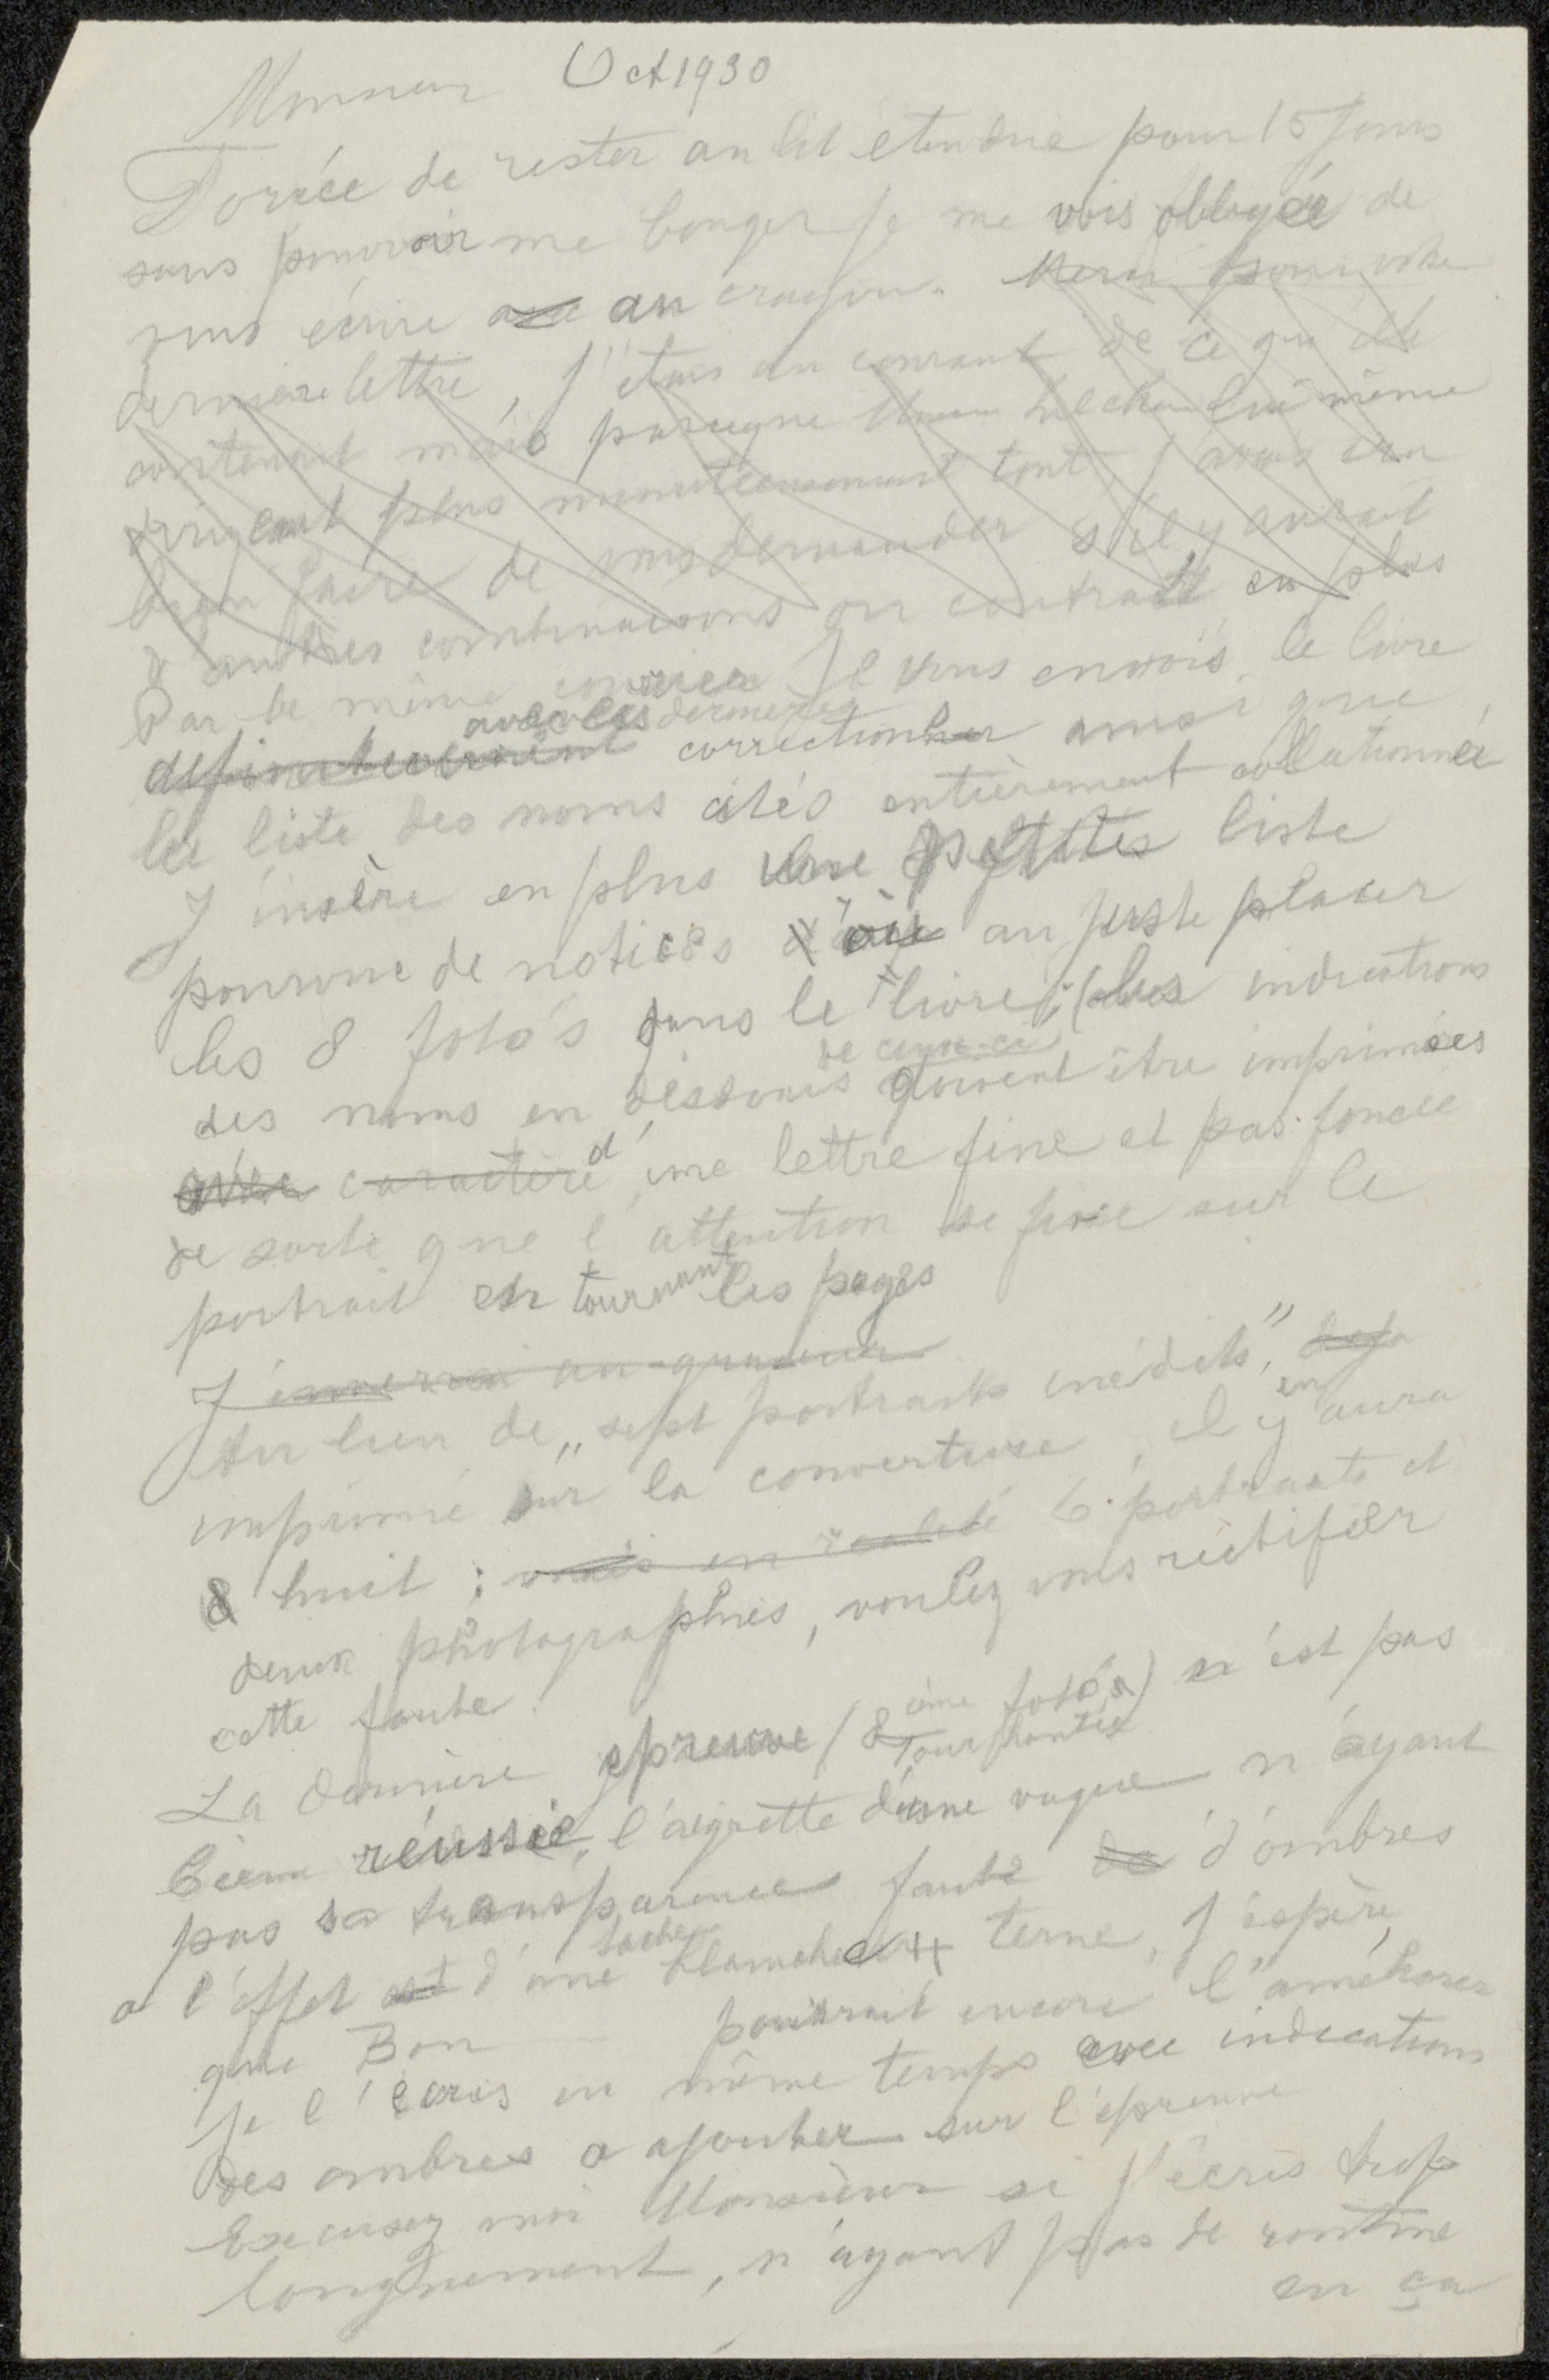 Monsieur Oct 1930
Forcée de rester au lit étendue pour 15 jours
sans pouvoir me bouger je me vois obligée de
vous écrire au crayon. Merci pour votre
dernière lettre, j'étais au courant de ce qu'elle
contenait mais parceque lui même
dirigeant plus minutieusement tout, j'avais cru
bien faire de vous demander s'il y aurait
d'autres combinaisons ou contrats en plus
Par le même courrier je vous envois le livre
avec les dernieres
definitivement correctionner ainsi que
la liste des noms cités entièrement collationnée
J'insère en plus une petites liste
pourvue de notices d'où au juste placer
les 8 foto's dans le livre; (les indications
de ceux-ci
des noms en dessous doivent être imprimées
avec caractère d'une lettre fine et pas foncée
de sorte que l'attention se fixe sur le
portrait en tournant les pages
J'enverrai au graveur
Au lieu de „sept portraits inédits", deja
imprimé sur la couverture, il y en aura
8 huit ; mais en realité 6 portraits et
deux photographies, voulez vous rectifier
cette faute.
La dernière epreuve (8 ième foto's) n'est pas
Tourmentés
bien réussie, l'aigrette d'une vague n'ayant
pas sa transparence faute de d'ombres
a l'effet est d'une tache blanche et terne, j'espère
que Bon pourrait encore l'améliorer
je l'écris en même temps avec indications
des ombres a ajouter sur l'épreuve
Excusez moi Monsieur si j'écris trop
longuement, n'ayant pas de routine
en ça